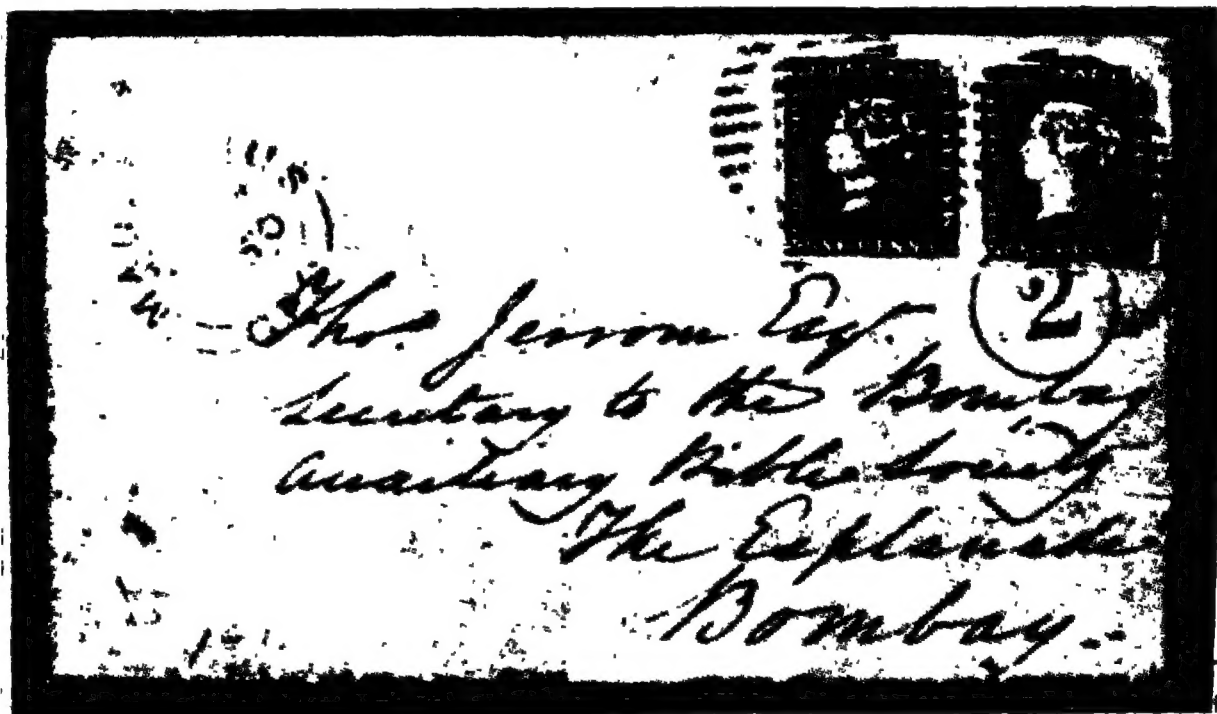 2
Thos. Jerrom Esq.
Secretary to the Bombay
Auxiliary Bible Society
The Esplanade
Bombay.